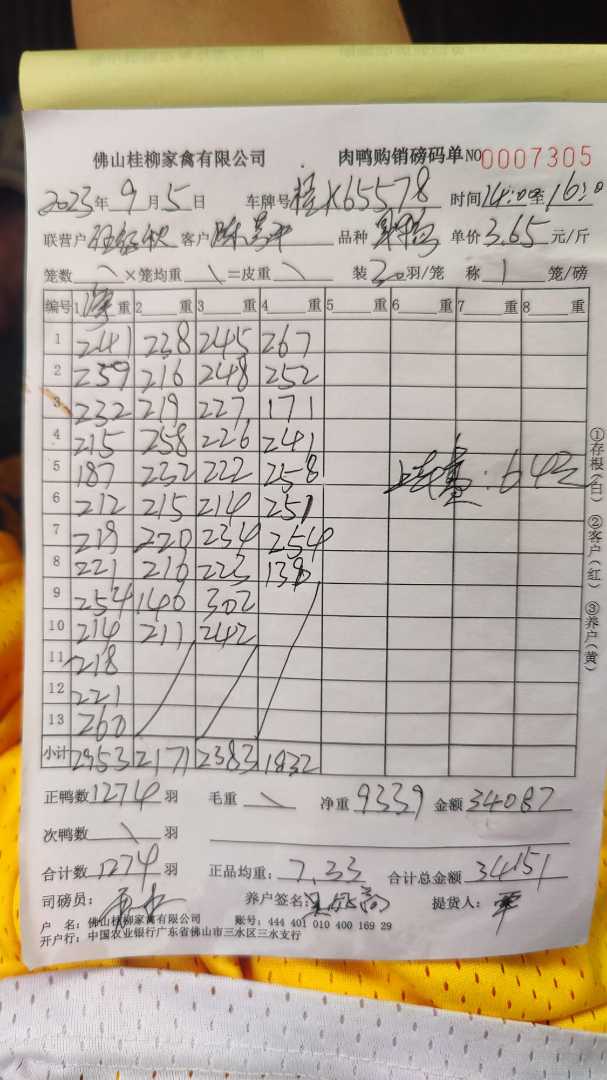 佛山桂柳家禽有限公司 肉鸭购销磅码单 NO 0007305
2023年 9 月 5 日 车牌号 桂K65578 时间 14:00至 16:0
联营户 客户 品种 单价 3.65 元/斤
笼数 \ ×笼均重 \ =皮重 \ 装 20 羽/笼 称 1 笼/磅
编号 1 净 重 2 重 3 重 4 重 5 重 6 重 7 重 8 重
1 241 228 245 267
2 259 216 248 252
3 232 219 227 171
4 215 258 226 241
5 187 232 222 258 :64元
6 212 215 214 251
7 219 220 234 254
8 221 216 223 138
9 254 146 302
10 214 211 242
11 218
12 221
13 260
小计 2953 2171 2383 1832
正鸭数 1274 羽 毛重 \ 净重 9339 金额 34087
次鸭数 \ 羽
合计数 1274 羽 正品均重: 7.33 合计总金额 34151
司磅员: 养户签名: 提货人:
户 名: 佛山桂柳家禽有限公司 账号: 444 401 010 400 169 29
开户行: 中国农业银行广东省佛山市三水区三水支行
①存根(白) ②客户(红) ③养户(黄)